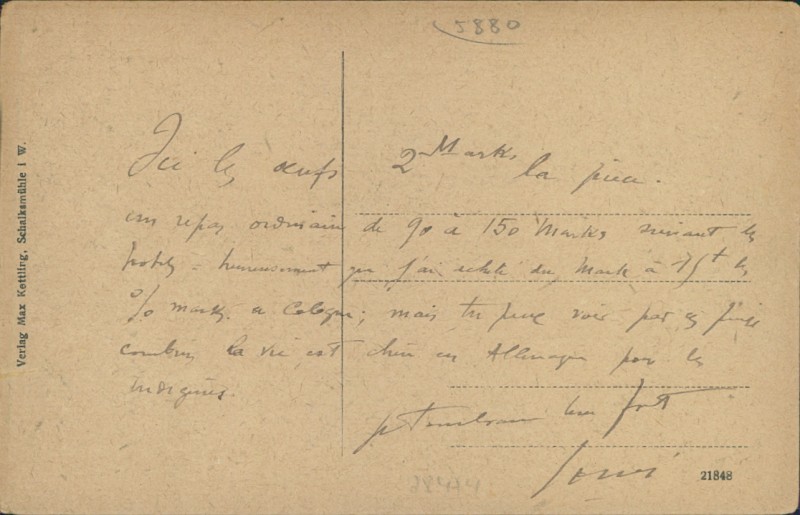 5880
Ici les œufs 2 Marks la pièce.
un repas ordinaire de 90 à 150 Marks suivant les
hotels - heureusement que j'ai acheté du Mark à
% marks a Cologne; mais tu peux voir par ces
combien la vie est chère en Allemagne pour les
indigènes.
je t'embrasse bien fort
Verlag Max Kettling, Schalksmühle i W.
21848